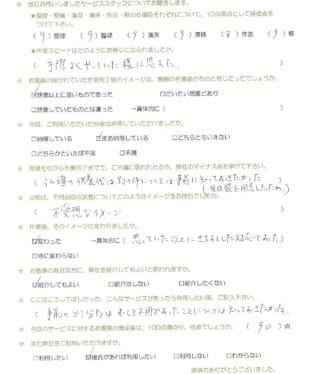 ☆ 当日お伺いしましたサービススタッフについてお聞きします。
★整理・整頓・清潔・清掃・作法・躾の6項目それぞれについて、10点満点として評価点を
つけて下さい。
(9)整理 (9)整頓 (9)清潔 (9)清掃 (9)作法 (9)躾
★作業スピードはどのようにお感じになられましたか。
( 手際よくやっていた様に思えた。 )
☆ お客様の描かれていた作業完了後のイメージは、実際の作業後のものと同じだったでしょうか。
☑想像以上に良いものであった □だいたい想像どおり
□想像していたものとは違った →具体的に( )
☆ 今回、ご利用いただいた料金は納得していただけましたか。
□納得している ☑まあ納得している □どちらともいえない
□どちらかといえば不満 □不満
☆ 見積もりから作業完了までで、ご不満に思われた点や、弊社のマイナス点を挙げて下さい。
( 仏壇の供養代は別の件については事前に知っておきたかった
(当日袋を用意したため)
☆ 以前は、不用品回収業者についてどのようなイメージをお持ちでしたか。
( 不安感なイメージ )
☆ 作業後、そのイメージは変わりましたか。
☑変わった →具体的に( 思っていた以上にきちんとした対応であった )
□特に変わらない
☆ お客様の身近な方に、弊社を紹介してもよいと思われますか。
☑紹介してもよい □紹介はしない □紹介したくない
☆ ここはこうしてほしかった、こんなサービスがあったら利用したい等、ご記入下さい。
( 事前のゴミ分別はむしろ不用であったことについては知っておきたかった。
☆ 今回のサービスに対するお客様の満足度は、100点満点中、何点でしょうか。 ( 90 )点
☆ また弊社をご利用いただけますか。
□利用したい ☑機会があれば利用したい □利用しない □わからない
御協力ありがとうございました。